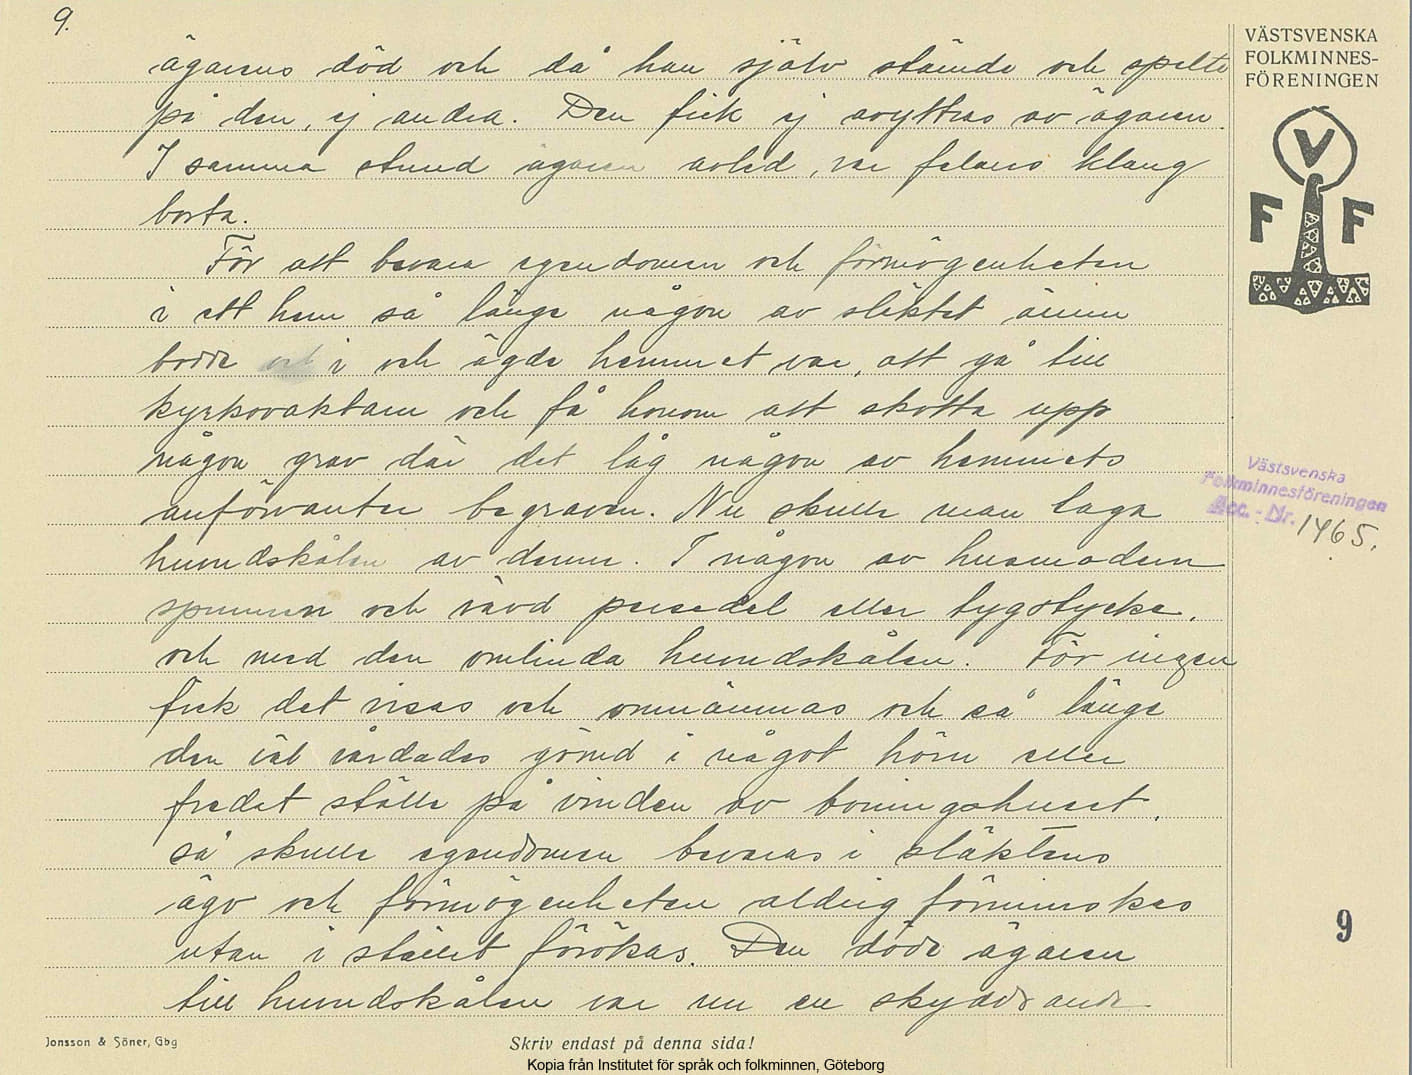 9.
VÄSTSVENSKA
FOLKMINNES-
FÖRENINGEN
V
F F
ägarens död och då han själv stämde och spelte
på den, ej andra. Den fick ej avyttras av ägaren.
I samma stund ägaren avled, var felans klang
borta.
För att bevara egendomen och förmögenheten
i ett hem så länge någon av släktet ännu
bodde i och ägde hemmet var, att gå till
kyrkovaktaren och få honom att skotta upp
någon grav där det låg någon av hemmets
anförvanter begraven. Nu skulle man taga
huvudskålen av denne. I någon av husmodern
spunnen och vävd persedel eller tygstycke,
och med den omlinda huvudskålen. För ingen
fick det visas och omnämnas och så länge
den väl vårdades gömd i något hörn eller
fredat ställe på vinden av boningshuset,
så skulle egendomen bevaras i släktens
ägo och förmögenheten aldrig förminskas
utan i stället förökas. Den döde ägaren
till huvudskålen var nu en skyddsande
Västsvenska
Folkminnesföreningen
Acc. - Nr. 1465.
9
Jonsson & Söner, Gbg
Skriv endast på denna sida!
Kopia från Institutet för språk och folkminnen, Göteborg